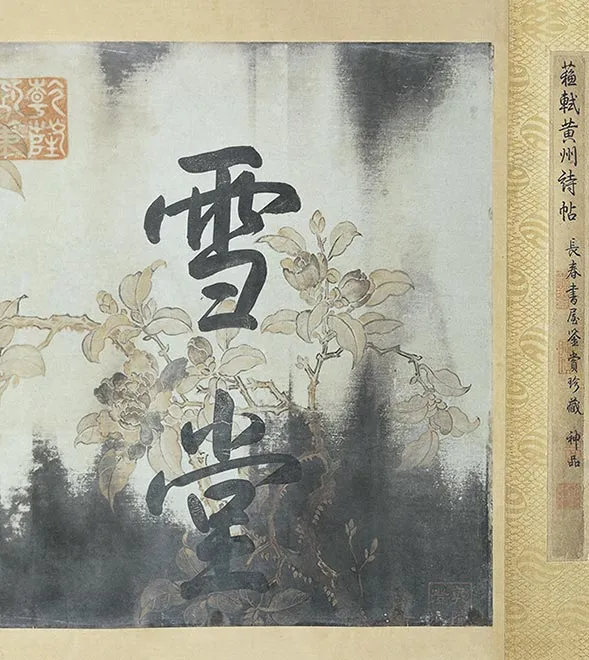 蘇軾黃州詩帖 長春書屋鑒賞珍藏 神品
雪堂
乾隆
御筆